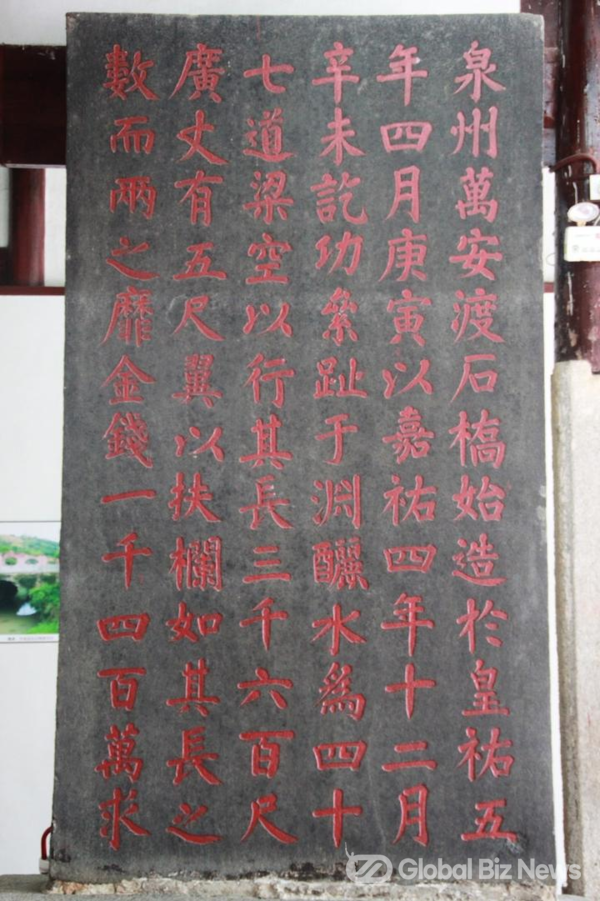 泉州萬安渡石橋始造於皇祐五
年四月庚寅以嘉祐四年十二月
辛未訖功絫趾于淵釃水為四十
七道梁空以行其長三千六百尺
廣丈有五尺翼以扶欄如其長之
數而兩之靡金錢一千四百萬求
Global Biz News